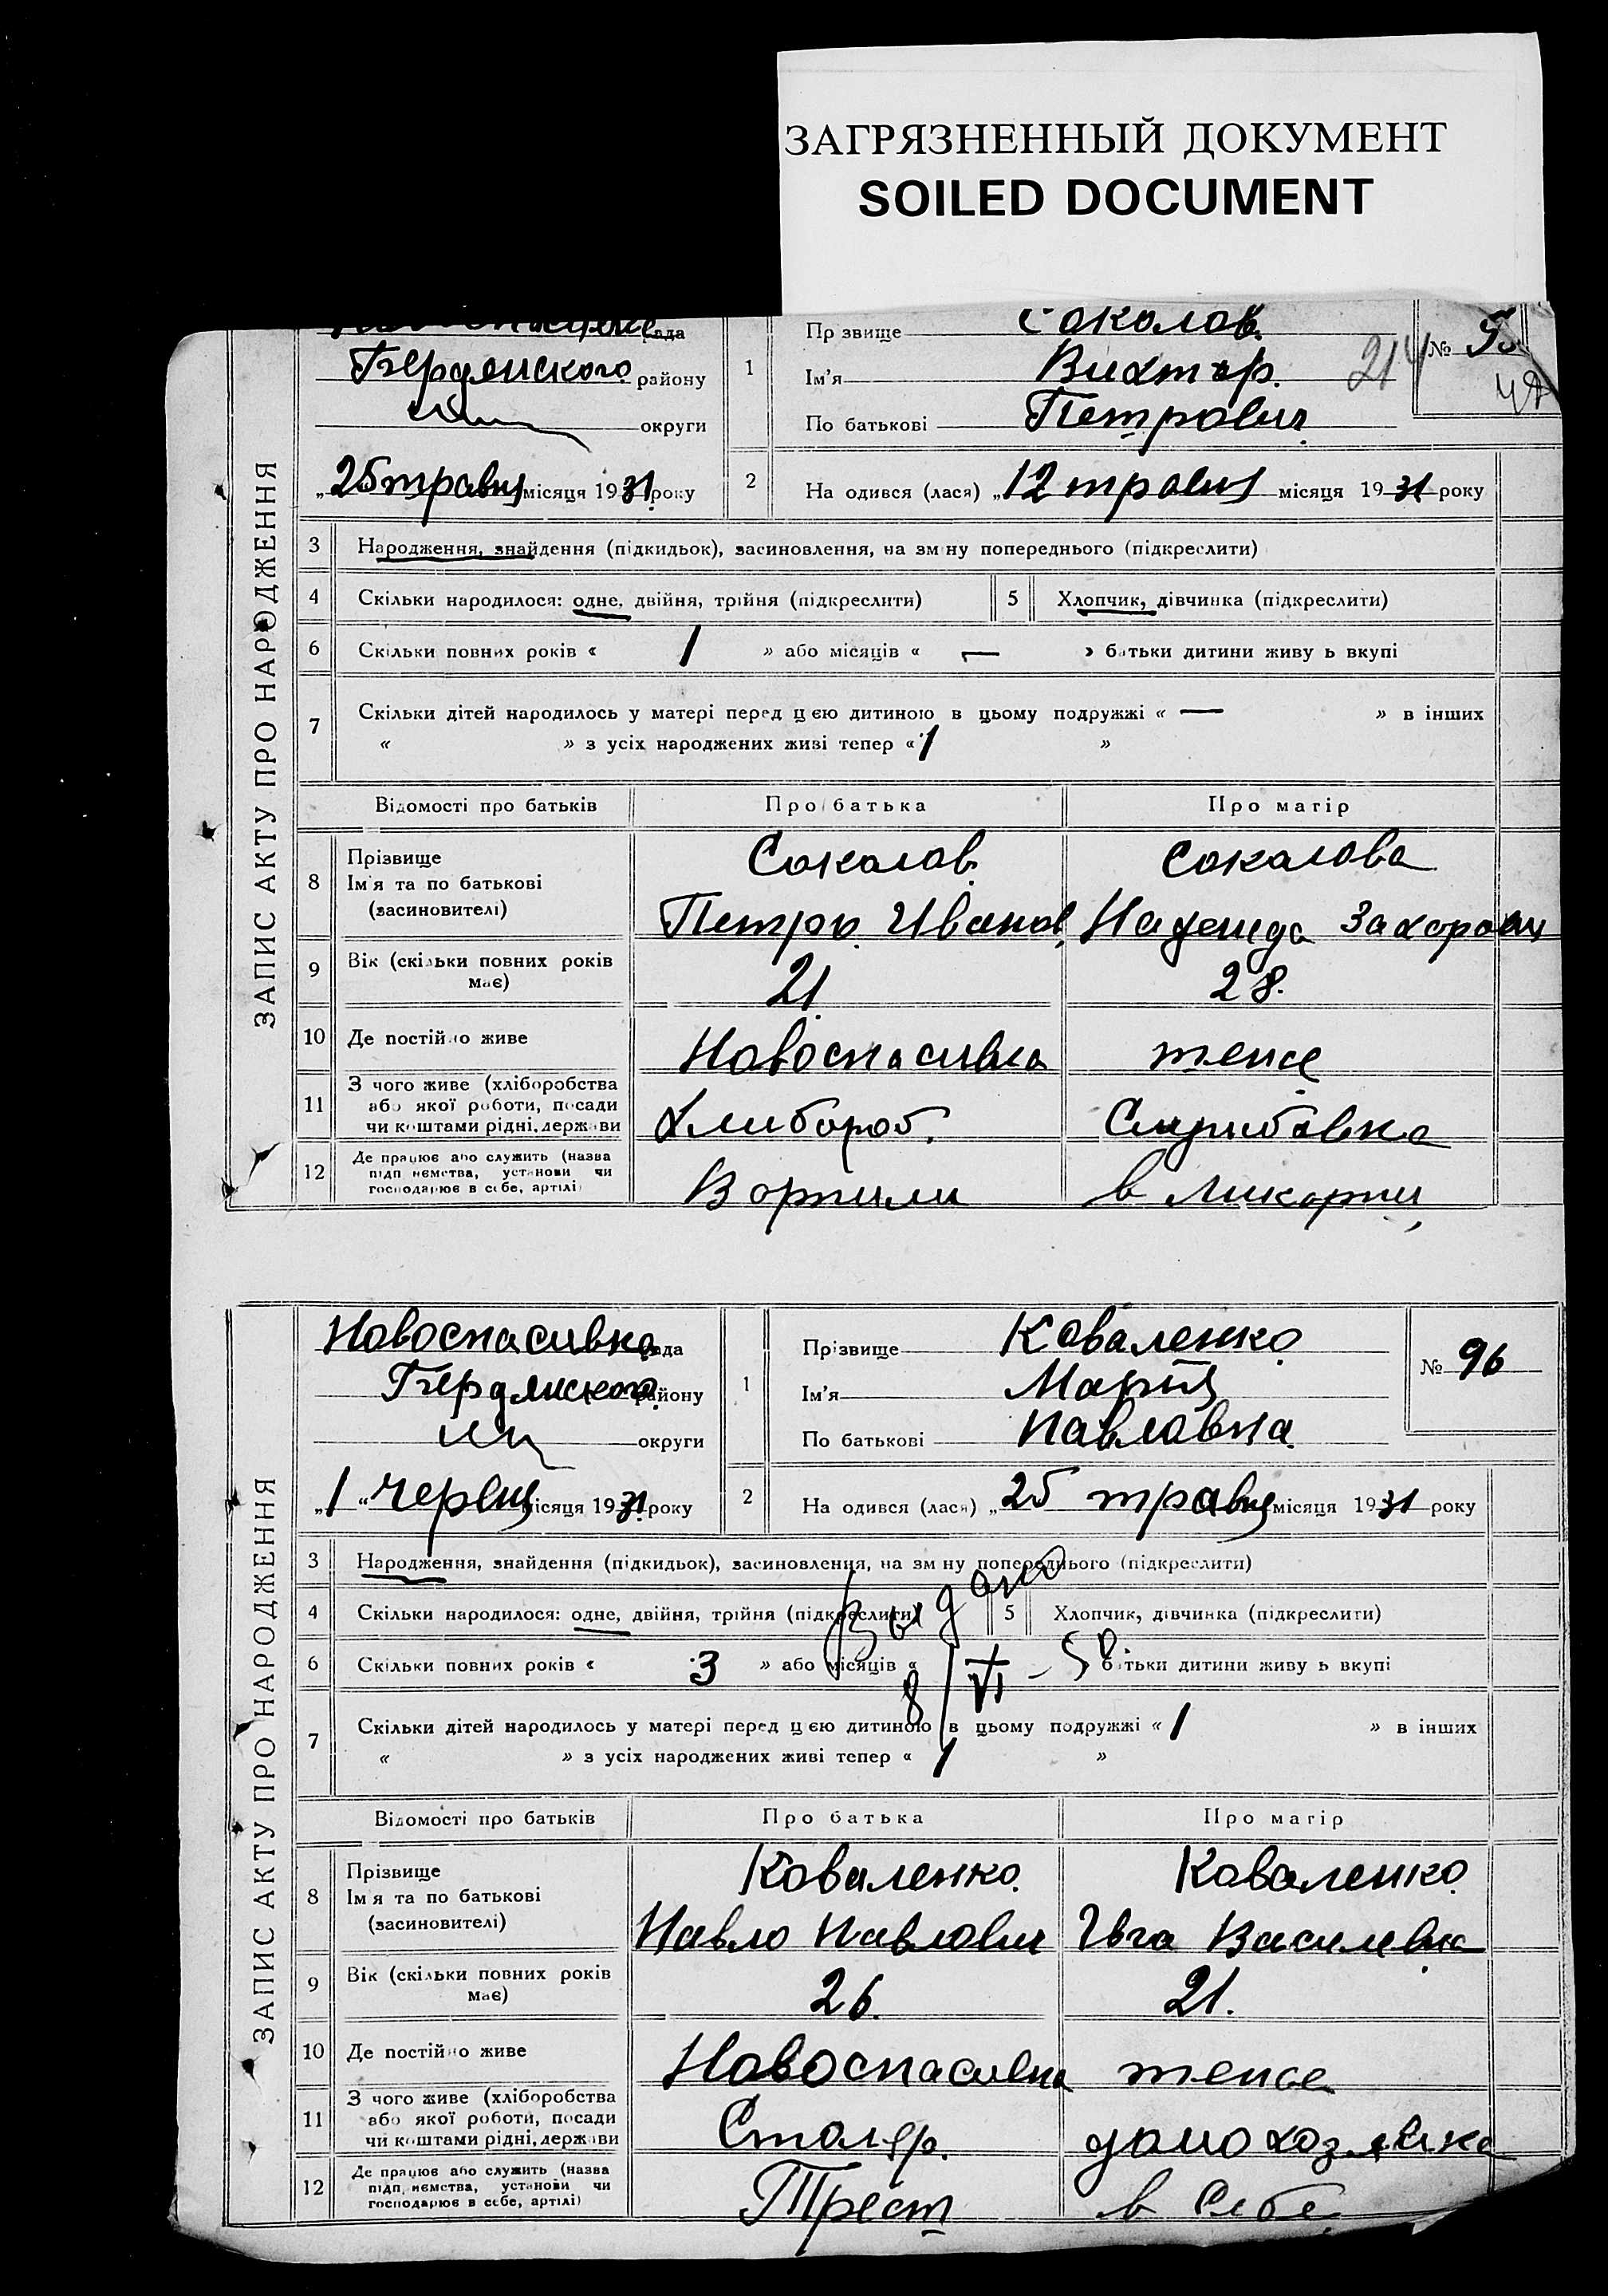 ЗАГРЯЗНЕННЫЙ ДОКУМЕНТ
SOILED DOCUMENT
ЗАПИС АКТУ ПРО НАРОДЖЕННЯ
рада
Бердянского району
округи
„25 травня місяця 1931 року
1
Прізвище Соколов.
Ім'я Виктор.
По батькові Петрович
214
№
2
Народився (лася) „12 травня місяця 1931 року
3 Народження, знайдення (підкидьок), засиновлення, на зміну попереднього (підкреслити)
4 Скільки народилося: одне, двійня, трійня (підкреслити) 5 Хлопчик, дівчинка (підкреслити)
6 Скільки повних років « 1 » або місяців « — » батьки дитини живуть вкупі
7 Скільки дітей народилось у матері перед цією дитиною в цьому подружжі « — » в інших
« » з усіх народжених живі тепер « 1 »
Відомості про батьків Про батька Про матір
8 Прізвище Соколов. Соколова
Ім'я та по батькові
(засиновителі) Петро Иванов. Надежда Захоровн
9 Вік (скільки повних років має) 21. 28.
10 Де постійно живе Новоспасивка теже
11 З чого живе (хліборобства
або якої роботи, посади
чи коштами рідні, держави Хлибороб. Службовка
12 Де працює або служить (назва
підприємства, установи чи
господарює в себе, артілі) В артили в Ликарни
ЗАПИС АКТУ ПРО НАРОДЖЕННЯ
Новоспасивка рада
Бердянского району
округи
„1" Червня місяця 1931 року
1
Прізвище Коваленко
Ім'я Мария
По батькові Павловна
№ 96
2
Народився (лася) „25 травня місяця 1931 року
3 Народження, знайдення (підкидьок), засиновлення, на зміну попереднього (підкреслити)
Выдано
4 Скільки народилося: одне, двійня, трійня (підкреслити) 5 Хлопчик, дівчинка (підкреслити)
6 Скільки повних років « 3 » або місяців « » батьки дитини живуть вкупі
8/VI – 50
7 Скільки дітей народилось у матері перед цією дитиною в цьому подружжі « 1 » в інших
« » з усіх народжених живі тепер « 1 »
Відомості про батьків Про батька Про матір
8 Прізвище Коваленко. Коваленко
Ім'я та по батькові
(засиновителі) Павло Павлович Ивга Василевна
9 Вік (скільки повних років має) 26. 21.
10 Де постійно живе Новоспасивка теже
11 З чого живе (хліборобства
або якої роботи, посади
чи коштами рідні, держави Столяр. домохозяйка
12 Де працює або служить (назва
підприємства, установи чи
господарює в себе, артілі) Трест в Себе